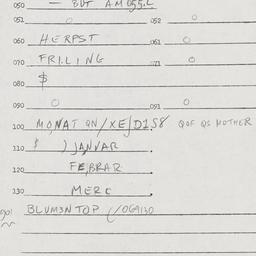 050 — BUT AM055.L
051 O 052 O
060 HERPST 061 O
070 FRI.LING 071 O
080 $
090 O 091 O
100 MONAT QN/XE/D158 QOF QS MOTHER
110 $ ) JANVAR
120 FEBRAR
130 MERC
BLUM3NTOP